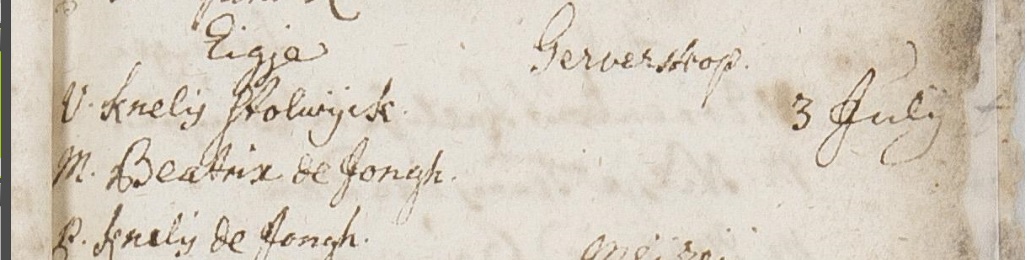 Eigje
Gerverskop.
V. Knelis Stolwijck.
3 Julij
M. Beatrix de Jongh.
P. Knelis de Jongh.